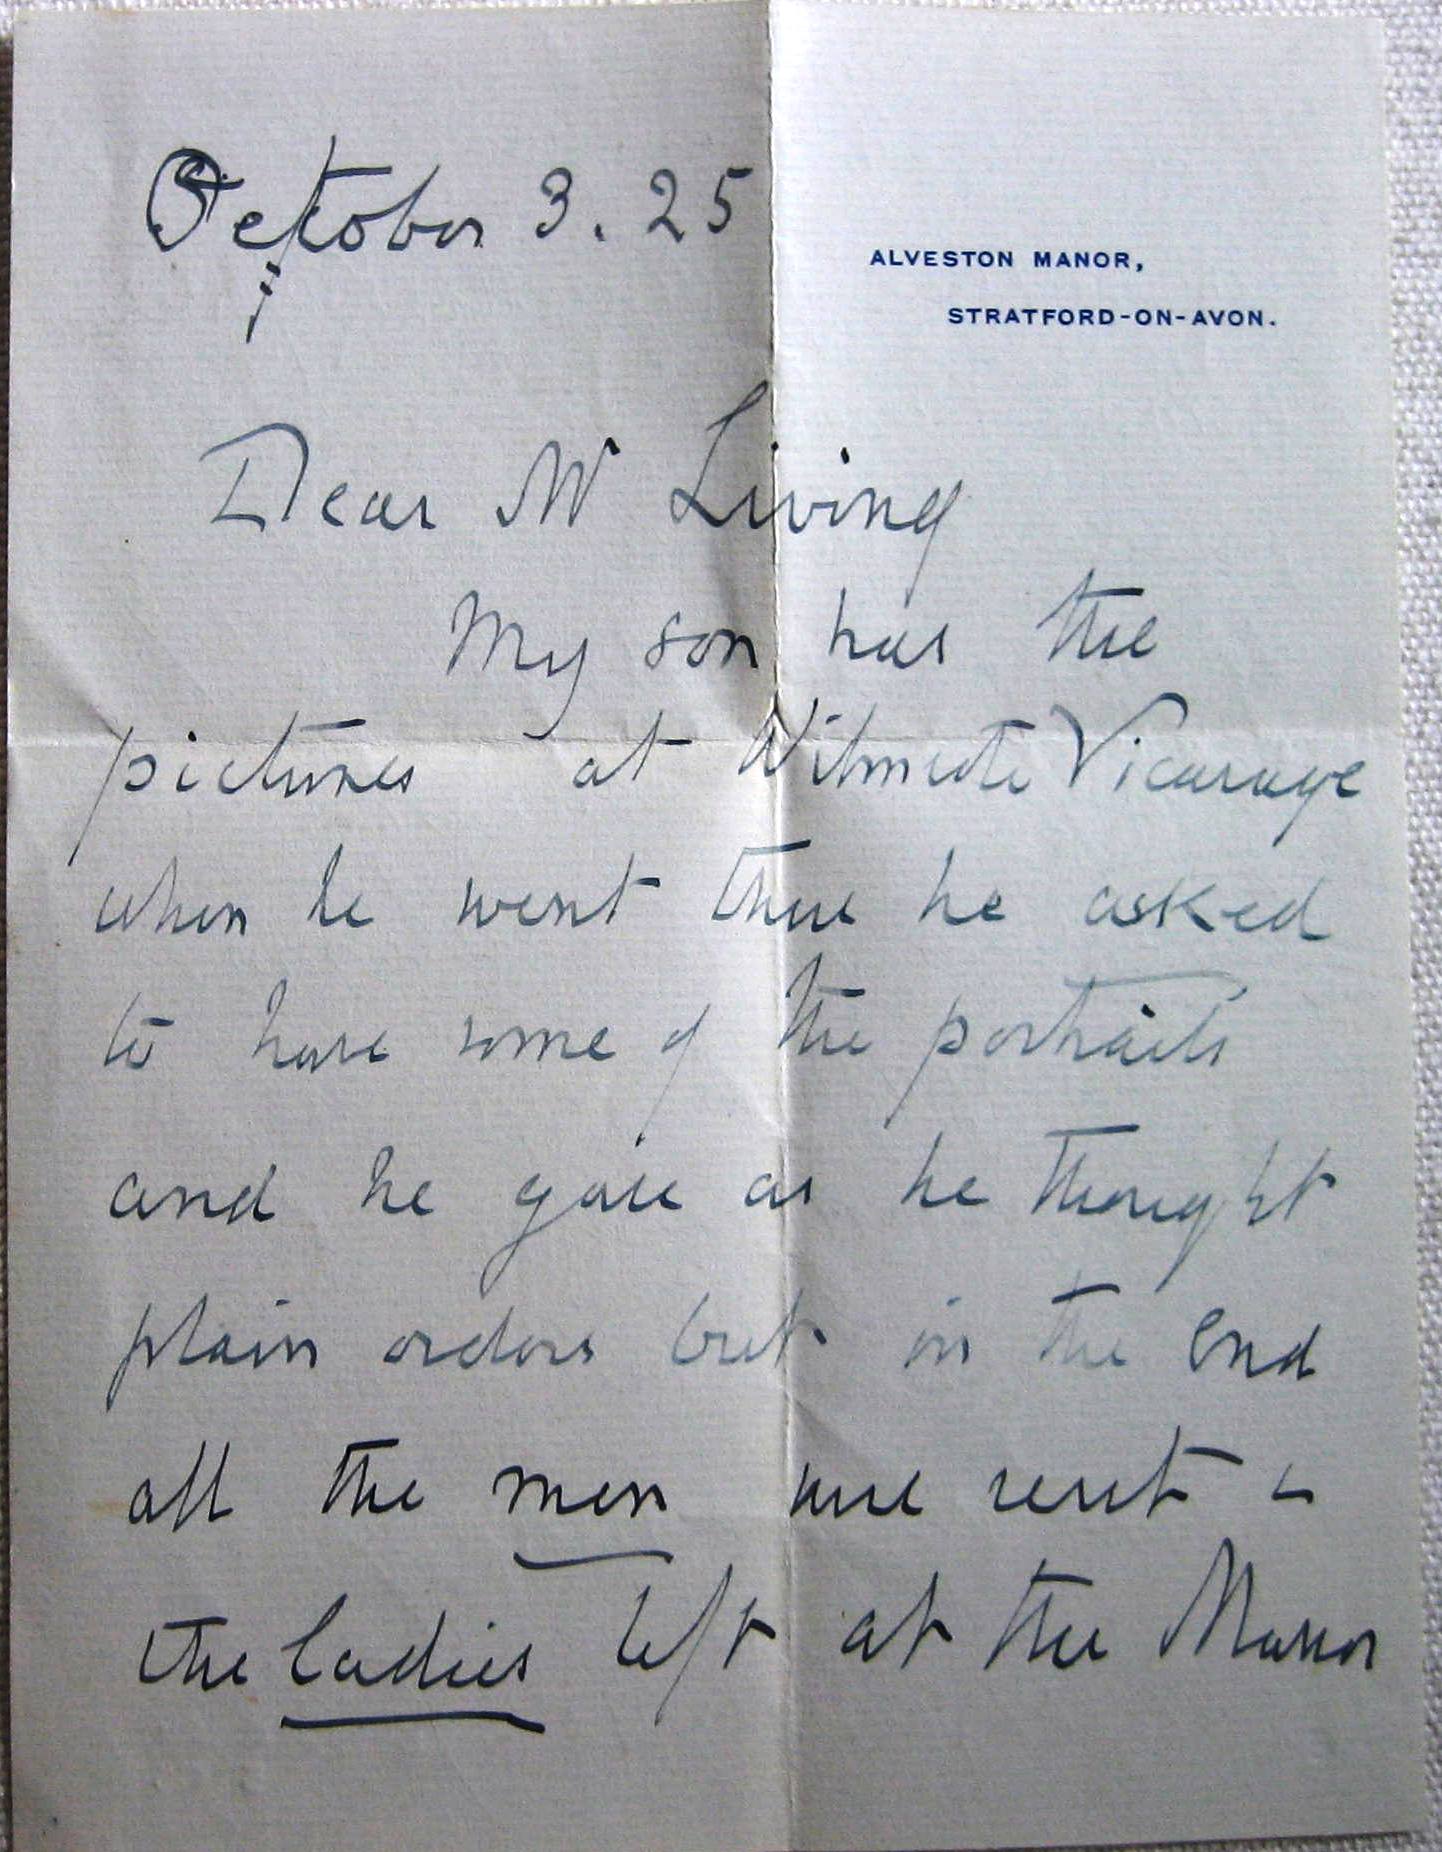 October 3. 25
ALVESTON MANOR,
STRATFORD-ON-AVON.
Dear Mr Living
My son has the
pictures at Wilmcote Vicarage
when he went there he asked
to have some of the portraits
and he gave as he thought
plain orders but in the end
all the men were sent &
the ladies left at the Manor